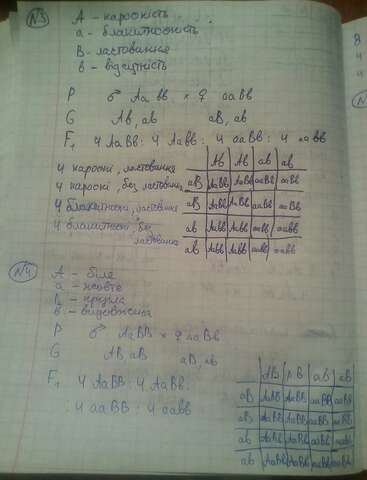 №3
А – кароокість
а – блакитноокість
В – ластовиння
в – відсутність
Р ♂ Аа вв × ♀ ааВв
G Ав, ав аВ, ав
F₁ 4 АаВв : 4 Аавв : 4 ааВв : 4 аавв
4 кароокі, ластовиння
4 кароокі, без ластовин
4 блакитноокі, ластовиння
4 блакитноокі, без
ластовиння
Ав Ав ав ав
аВ АаВв АаВв ааВв ааВв
аВ АаВв АаВв ааВв ааВв
ав Аавв Аавв аавв аавв
ав Аавв Аавв аавв аавв
№4
А – біле
а – жовте
В – кругла
в – видовжена
Р ♂ АаВВ × ♀ ааВв
G АВ аВ аВ, ав
F₁ 4 АаВВ : 4 АаВв :
: 4 ааВВ : 4 ааВв
АВ АВ аВ аВ
аВ АаВВ АаВВ ааВВ ааВВ
аВ АаВВ АаВВ ааВВ ааВВ
ав АаВв АаВв ааВв ааВв
ав АаВв АаВв ааВв ааВв